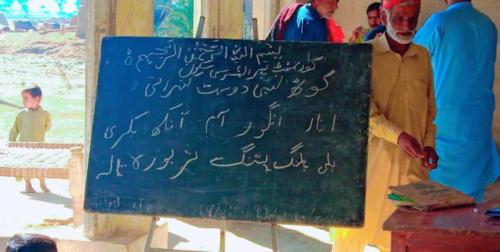 بسم اللہ الرحمن الرحیم
گورنمنٹ پرائمری سکول
گوٹھ نبی دوست لہڑانی
انار انگور آم آنکھ بکری
بلی پلنگ پتنگ تربوز تالہ